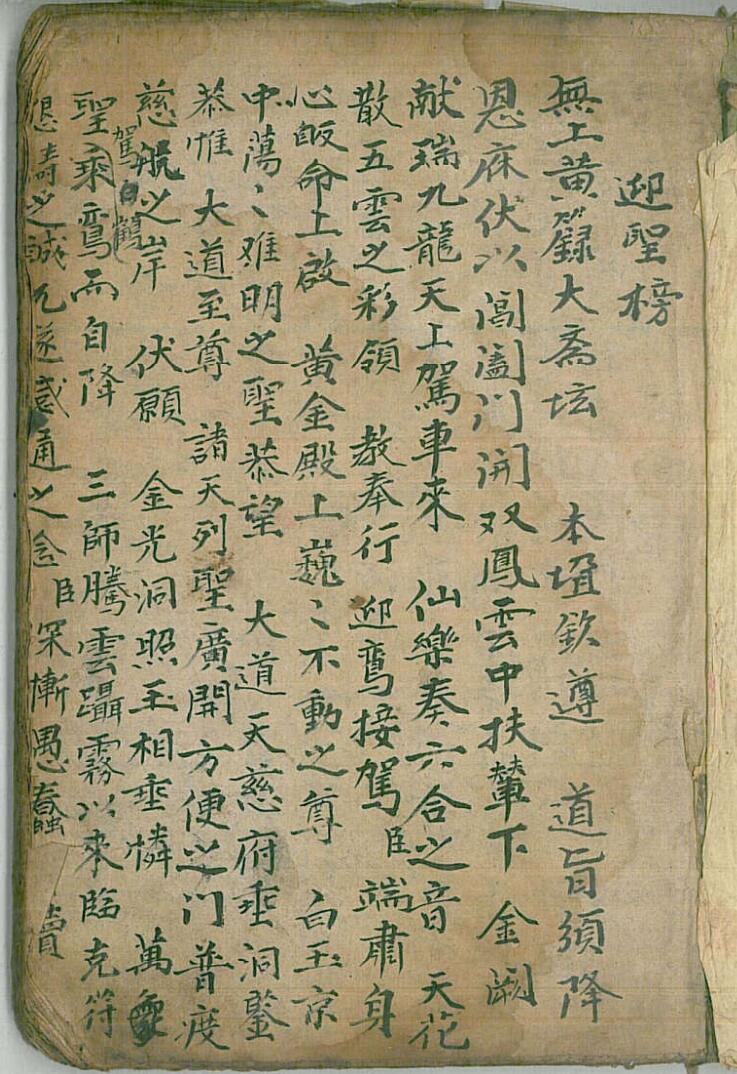 迎聖榜
無上黄籙大斋坛 本壇欽遵 道旨須降
恩庥伏以閶闔門開双鳳雲中扶輦下 金闕
献瑞九龍天上駕車來 仙樂奏六合之音 天花
散五雲之彩領 教奉行 迎鸾接駕臣端肃身
心皈命上啟 黄金殿上巍〻不動之尊 白玉京
中蕩〻难明之聖恭望 大道天慈府垂洞鑒
恭惟 大道至尊 諸天列聖廣開方便之门普度
慈航之岸 伏願 金光洞照玉相垂憐 萬
駕白鶴
聖乘鸾而自降 三師騰雲躡霧以來臨克符
懇祷之誠允遂感通之念臣深慚愚蠢